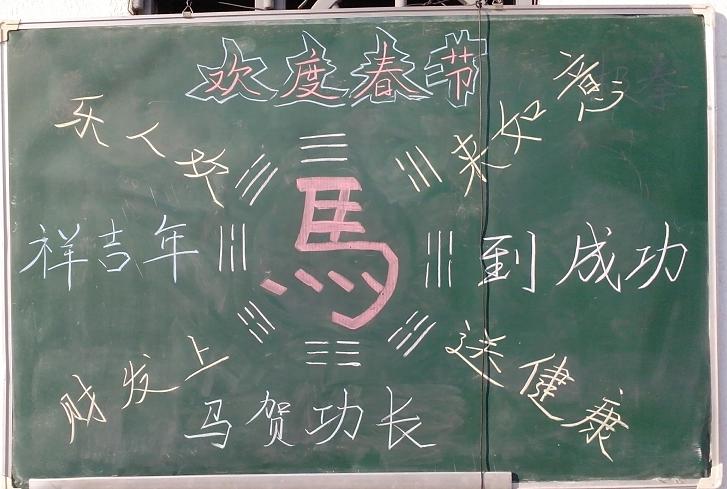 欢度春节
乐人
来如意
馬
祥吉年
到成功
财发上
送健康
马贺功长